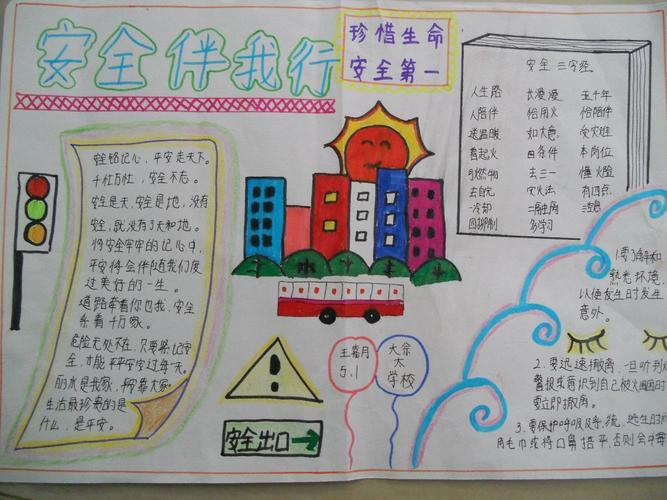 安全伴我行
珍惜生命
安全第一
安全三字经
人生路 长漫漫 五千年
人陪伴 恰用火 恰陪伴
送温暖 如大意 受灾难
着起火 四条件 本岗位
可燃物 去三一 懂火险
灾火法 有四点
一冷却 三窒息
四抑制 多学习
安全铭记心,平安走天下。
千忙万忙,安全不忘。
安全是天,安全是地,没有
安全,就没有了天和地。
将安全牢牢的记心中,
平安将会伴随我们度
过美好的一生。
道路牵着你也我,安全
系着千万家。
危险无处不在,只要将记安
全,才能平平安安过每天。
丽水是我家,平安靠大家。
生活最珍贵的是
什么,是平安。
安全出口
王嘉月
5.1
大佘
太
学校
1.要了解和
熟悉环境,
以便发生时发生
意外。
2.要迅速撤离,一旦听到
警报或意识到自己被火围困
要立即撤离。
3.要保护呼吸系统,逃生时
用毛巾或将口鼻捂平,否则会中毒